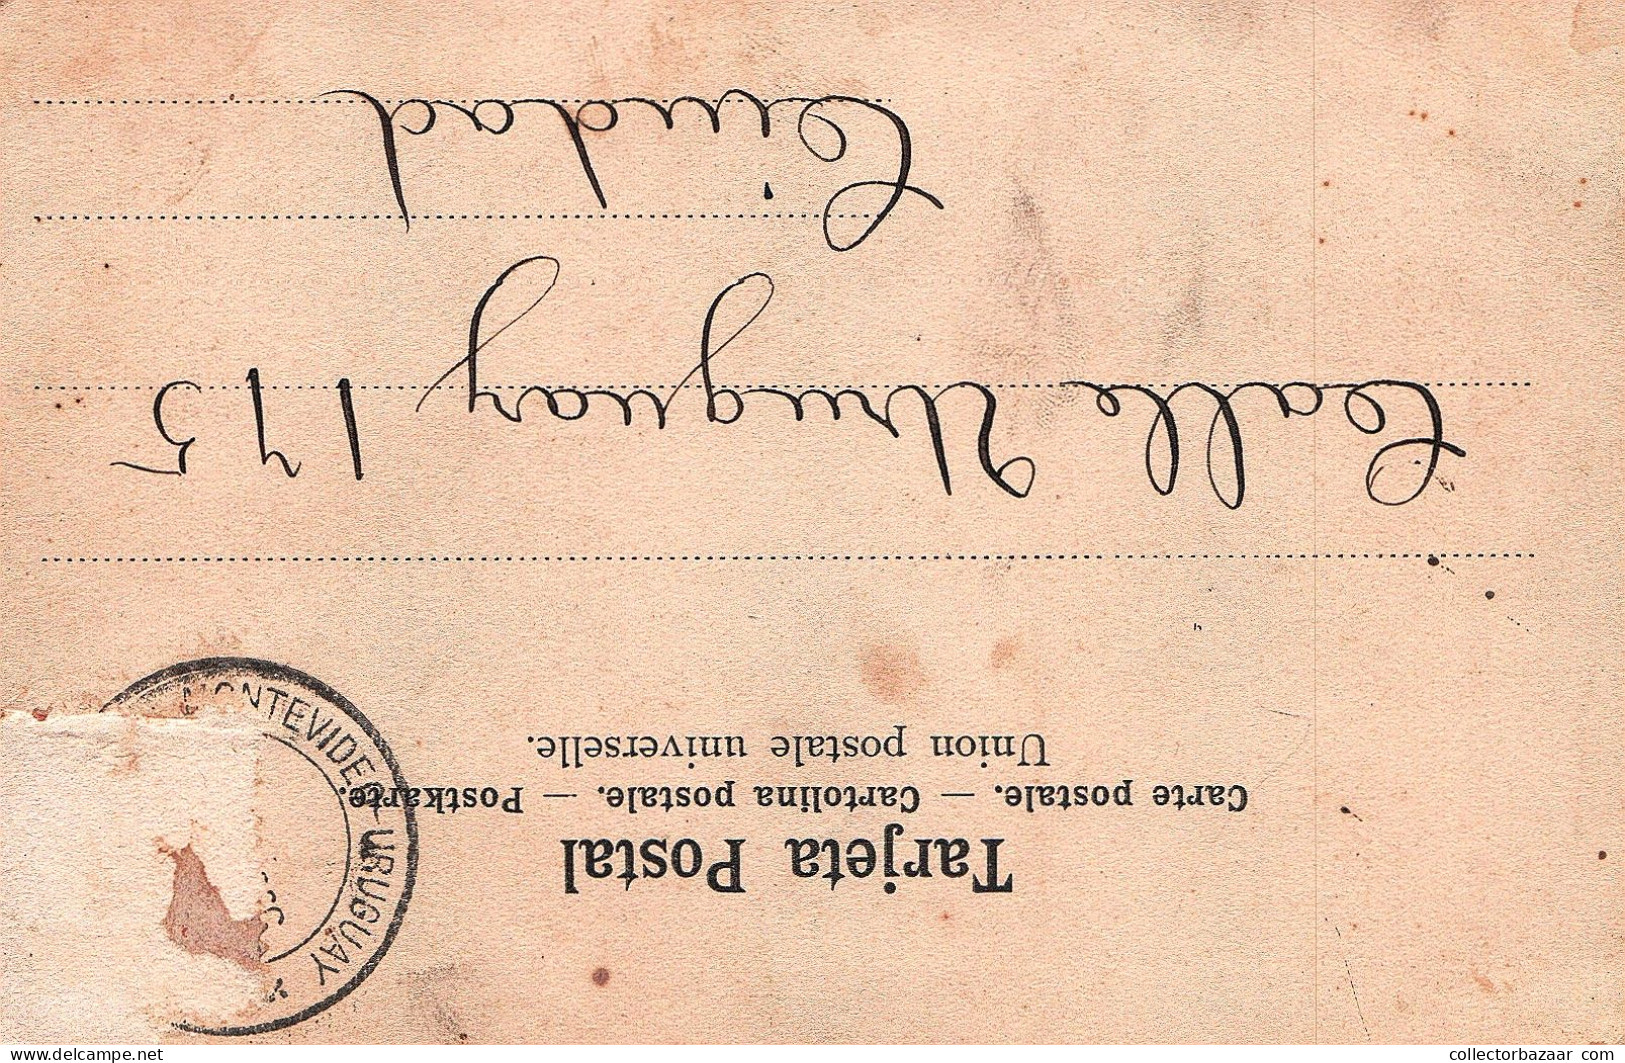 Tarjeta Postal
Carte postale. — Cartolina postale. — Postkarte.
Union postale universelle.
MONTEVIDEO-URUGUAY
Calle Uruguay 175
Ciudad
delcampe.net
collectorbazaar.com